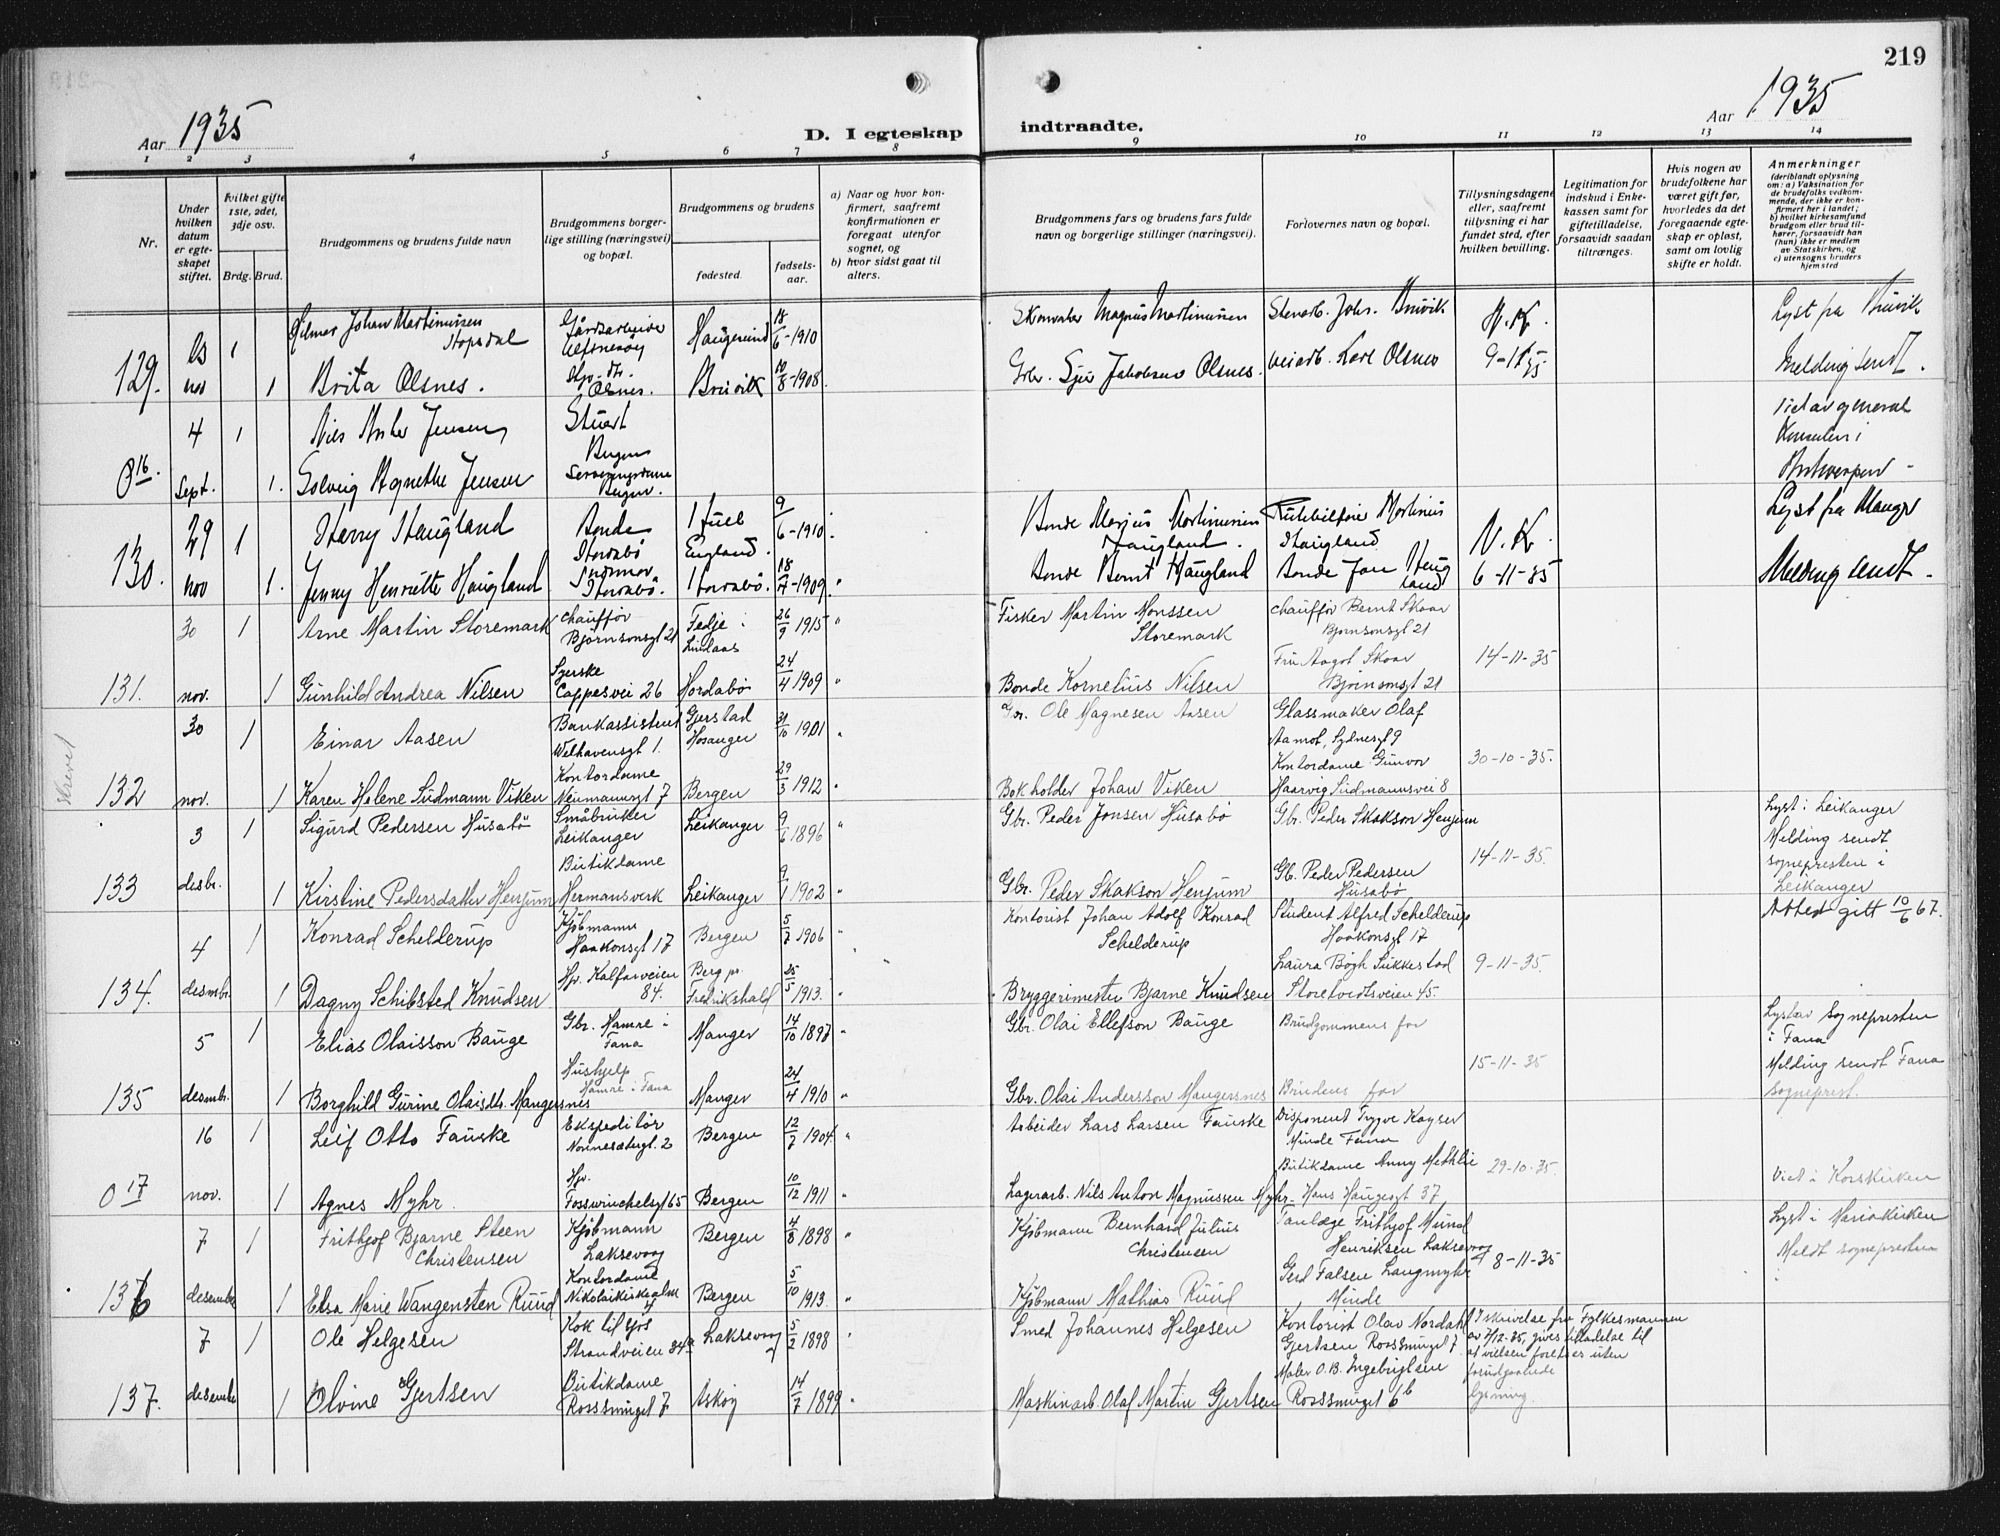 219
Aar 1935
D. I egteskap
indtraadte.
Aar 1935
1 2 3 4 5 6 7 8 9 10 11 12 13 14
Nr.
Under hvilken datum er egteskapet stiftet.
Hvilket gifte 1ste, 2det, 3dje osv.
Brdg. Brud.
Brudgommens og brudens fulde navn
Brudgommens borgerlige stilling (næringsvei) og bopæl.
Brudgommens og brudens
fødested.
fødselsaar.
a) Naar og hvor konfirmert, saafremt konfirmationen er foregaat utenfor sognet, og
b) hvor sidst gaat til alters.
Brudgommens fars og brudens fars fulde navn og borgerlige stillinger (næringsvei).
Forlovernes navn og bopæl.
Tillysningsdagene eller, saafremt tillysning ei har fundet sted, efter hvilken bevilling.
Legitimation for indskud i Enkekassen samt for giftetilladelse, forsaavidt saadan tiltrænges.
Hvis nogen av brudefolkene har været gift før, hvorledes da det foregaaende egteskap er opløst, samt om lovlig skifte er holdt.
Anmerkninger
(deriblandt oplysning om: a) Vaksination for de brudefolks vedkommende, der ikke er konfirmert her i landet; b) hvilket kirkesamfund brudgom eller brud tilhører, forsaavidt han (hun) ikke er medlem av Statskirken, og c) utensogns bruders hjemsted
129. nov 1 Hilmar Johan Martinussen Gårdsarbeider Haugesund 18/6-1910 Magnus Martinussen Johs. Bruvik N.K. Lyst fra Bruvik
1 Brita Olsnes. Olsnes. Bruvik 1908. Gbr. Sjur Jakobsen Olsnes. veiarb. Karl Olsnes 9-11-35 Melding sendt.
0 16. 4 Sept. 1 Nils Jensen Stuert Bergen Viet av general Konsulen i
1. Solveig Agnethe Jensen Bergen. Antwerpen
130. 29 nov 1 Harry Haugland Bonde Stordabø England. 9/6-1910. Bonde Marius Martinussen Haugland. Martinus Haugland N.K. Lyst fra Manger
1. Jenny Henriette Haugland Stordabø. Hordabø. 18/7-1909. Bonde Bernt Haugland Bonde Jan Haugland 6-11-35 Melding sendt.
131. 30 nov. 1 Arne Martin Storemark Chauffør Bjørnsonsgt 21 Fedje i Lindaas 26/9 1915 " Fisker Martin Monssen Storemark Chauffør Bernt Skaar Bjørnsonsgt 21
1 Gunhild Andrea Nilsen Syerske Cappesvei 26 Hordabø 24/4 1909 " Bonde Kornelius Nilsen Fru Aagot Skaar Bjørnsonsgt 21 14-11-35
132 30 nov. 1 Einar Aasen Bankassistent Welhavensgt 1. Gjerstad Hosanger 31/10 1901 " Gbr. Ole Magnesen Aasen Glassmaker Olaf Aamot, Sydnesgt 9
1 Karen Helene Sudmann Viken Kontordame Neumannsgt 7 Bergen 29/3 1912 " Bokholder Johan Viken Kontordame Gunvor Haarvig Sudmannsvei 8 30-10-35.
133 3 desbr. 1 Sigurd Pedersen Husabø Småbruker Leikanger Leikanger 9/6 1896 " Gbr. Peder Jonsen Husabø Gbr. Peder Skakson Henjum Lyst i Leikanger Melding sendt
1 Kirstine Pedersdatter Henjum Butikdame Hermansverk Leikanger 9/1 1902 " Gbr. Peder Skakson Henjum Gb. Peder Pedersen Husabø 14-11-35. sognepresten i Leikanger
134. 4 desmbr. 1 Konrad Schelderup Kjøbmann Haakonsgt 17 Bergen 5/7 1906 " Kontorist Johan Adolf Konrad Schelderup Student Alfred Schelderup Haakonsgt 17 Attest gitt 10/6 67.
1 Dagny Schibsted Knudsen Hjv. Kalfarveien 84. Berg pr. Fredrikshald 25/5 1913. " Bryggerimester Bjarne Knudsen Laura Bøgh Sukkestad Storetvedtsveien 45. 9-11-35.
135 5 desmbr. 1 Elias Olaisson Bauge Gbr. Hamre i Fana Manger 14/10 1897 " Gbr. Olai Ellefson Bauge Brudgommens far Lyst av Sognepresten i Fana
1 Borghild Gurine Olaisdtr. Mangersnes Hushjelp Hamre i Fana Manger 24/4 1910 " Gbr. Olai Andersson Mangersnes Brudens far 15-11-35 Melding sendt Fana sogneprest.
0 17 16 nov. 1 Leif Otto Fauske Ekspeditør Nonnesætergt. 2 Bergen 12/7 1904 " Arbeider Lars Larsen Fauske Disponent Trygve Kayser Minde Fana
1 Agnes Myhr. Hjv. Fosswinckelsgt 65 Bergen 10/12 1911 " Lagerarb. Nils Anton Magnussen Myhr Butikdame Anny Methlie Hans Haugesgt 37 29-10-35. Viet i Korskirken
136 7 desember 1 Frithjof Bjarne Steen Christensen Kjøbmann Laksevaag Bergen 4/8 1898 " Kjøbmann Bernhard Julius Christensen Tanlæge Frithjof Mund Henriksen Laksevaag Lyst i Mariakirken
1 Elsa Marie Wangensten Ruud Kontordame Nikolaikirkealm Bergen 5/10 1913. " Kjøbmann Mathias Ruud Gerd Falsen Langmyhr Minde 8-11-35 Meldt sognepresten
137. 7 desember 1 Ole Helgesen Kok til sjøs Strandveien 34a Laksevaag 5/2 1898 " Smed Johannes Helgesen Kontorist Olav Nordahl Gjertsen Rosssmuget 7 I skrivelse fra Fylkesmannen av 7/12-35, gives tilladelse til at vielsen foretaes uten forutgaaende lysning.
1 Olvine Gjertsen Butikdame Rosssmuget 7 Askøy 14/7 1899 " Maskinarb. Olaf Martin Gjertsen Maler O.B. Ingebrigtsen Rosssmuget 6b